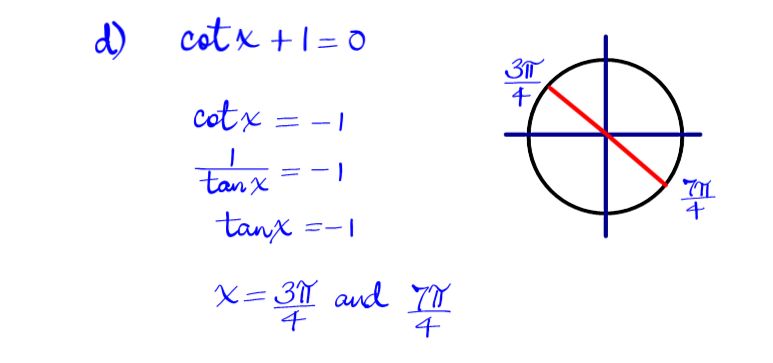 d) cotx + 1 = 0
cotx = -1
1/tanx = -1
tanx = -1
x = 3π/4 and 7π/4
3π/4
7π/4